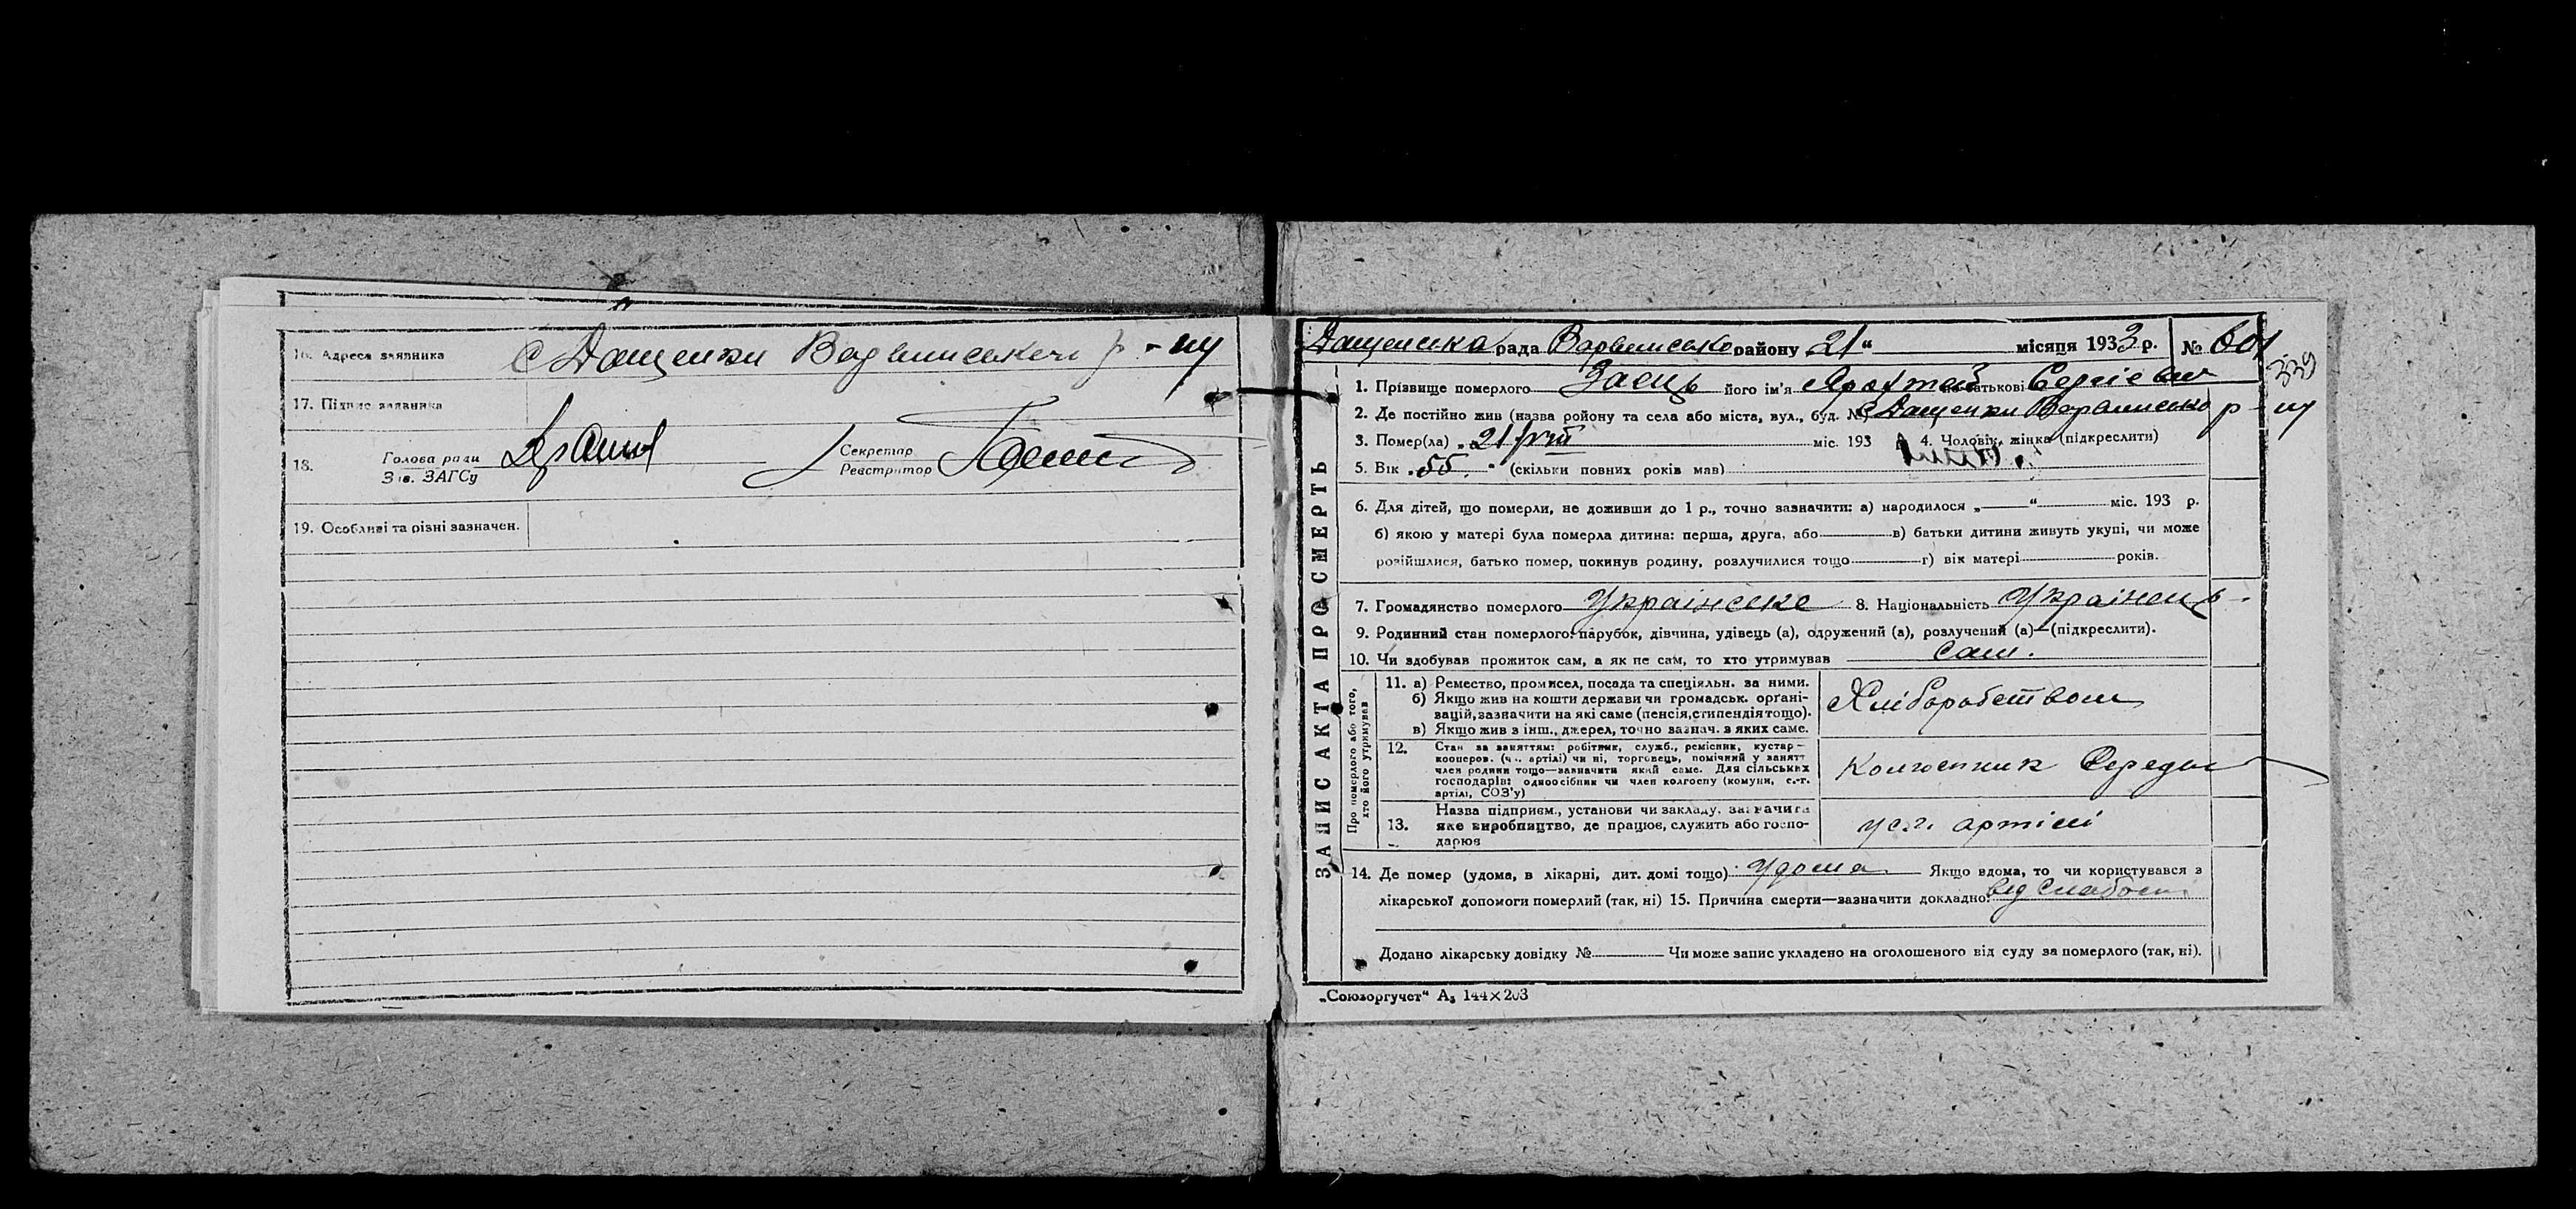 16. Адреса заявника с Дащенки Варвинського р-ну
17. Підпис заявника
18. Голова ради
Зав. ЗАГСу
Секретар
Реєстратор
19. Особливі та різні зазначен.
Дащенська рада Варвинсько району 21 “ місяця 1933 р. № 601
339
ЗАПИС АКТА ПРО СМЕРТЬ
1. Прізвище померлого Заєць його ім'я по батькові Сергієвич
2. Де постійно жив (назва району та села або міста, вул., буд. №) с Дащенки Варвинсько р-ну
3. Помер(ла) „ 21/VIII міс. 193 4. Чоловік, жінка (підкреслити)
5. Вік „ 55 “ (скільки повних років мав)
6. Для дітей, що померли, не доживши до 1 р., точно зазначити: а) народилося „ “ міс. 193 р.
б) якою у матері була померла дитина: перша, друга, або в) батьки дитини живуть укупі, чи може
розійшлися, батько помер, покинув родину, розлучилися тощо г) вік матері років.
7. Громадянство померлого Українське 8. Національність Українець
9. Родинний стан померлого: парубок, дівчина, удівець (а), одружений (а), розлучений (а)—(підкреслити).
10. Чи здобував прожиток сам, а як не сам, то хто утримував Сам.
Про померлого або того,
хто його утримував
11. а) Ремество, промисел, посада та спеціяльн. за ними.
б) Якщо жив на кошти держави чи громадськ. орґані-
зацій, зазначити на які саме (пенсія, стипендія тощо).
в) Якщо жив з інш., джерел, точно зазнач. з яких саме.
Хліборобством
12. Стан за заняттям: робітник, служб., ремісник, кустар—
кооперов. (ч.. артілі) чи ні, торговець, помічний у занятт
член родини тощо—зазначити який саме. Для сільських
господарів: одноосібник чи член колгоспу (комуни, с.-г.
артілі, СОЗ'у)
Колгоспник Середн
13. Назва підприєм., установи чи закладу, зазначити
яке виробництво, де працює, служить або госпо-
дарює
у с.г. артілі
14. Де помер (удома, в лікарні, дит. домі тощо) удома Якщо вдома, то чи користувався з
лікарської допомоги померлий (так, ні) 15. Причина смерти—зазначити докладно: від слабости
Додано лікарську довідку № Чи може запис укладено на оголошеного від суду за померлого (так, ні).
„Союзоргучет“ А₅ 144×203